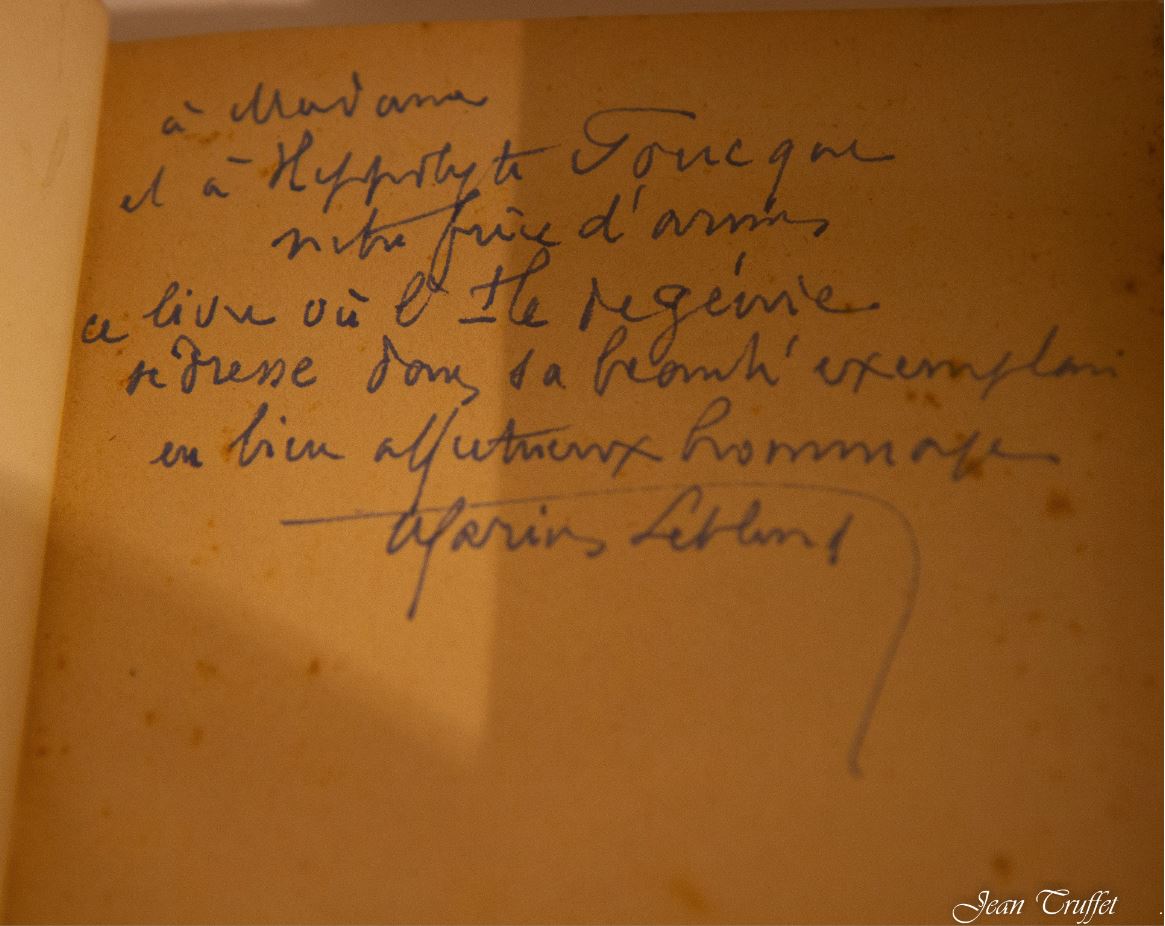 à Madame
et à Hippolyte Foucque
notre frère d'armes
ce livre où l'Ile de génie
se dresse dans sa beauté exemplaire
en bien affectueux hommage
Marius Leblond
Jean Truffet